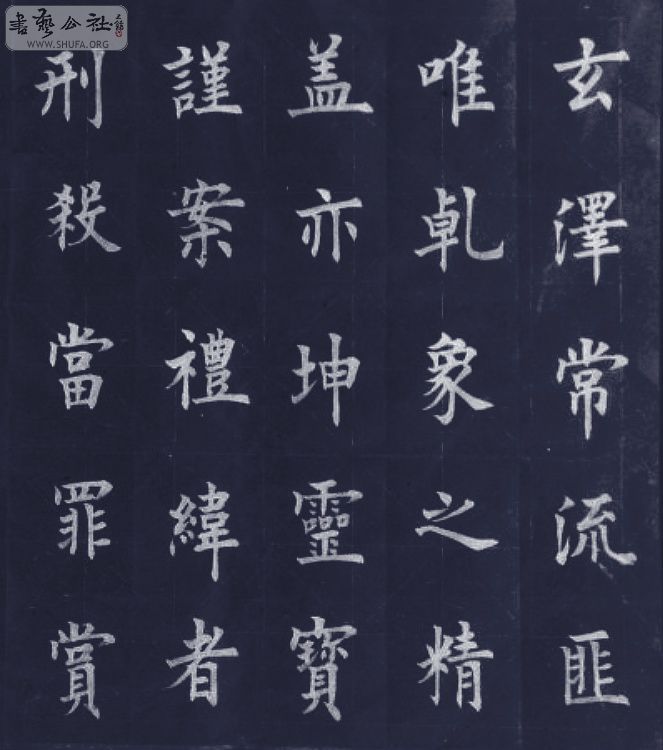 玄澤常流匪
唯乹象之精
盖亦坤靈寶
謹案禮緯者
刑殺當罪賞
書藝公社
WWW.SHUFA.ORG